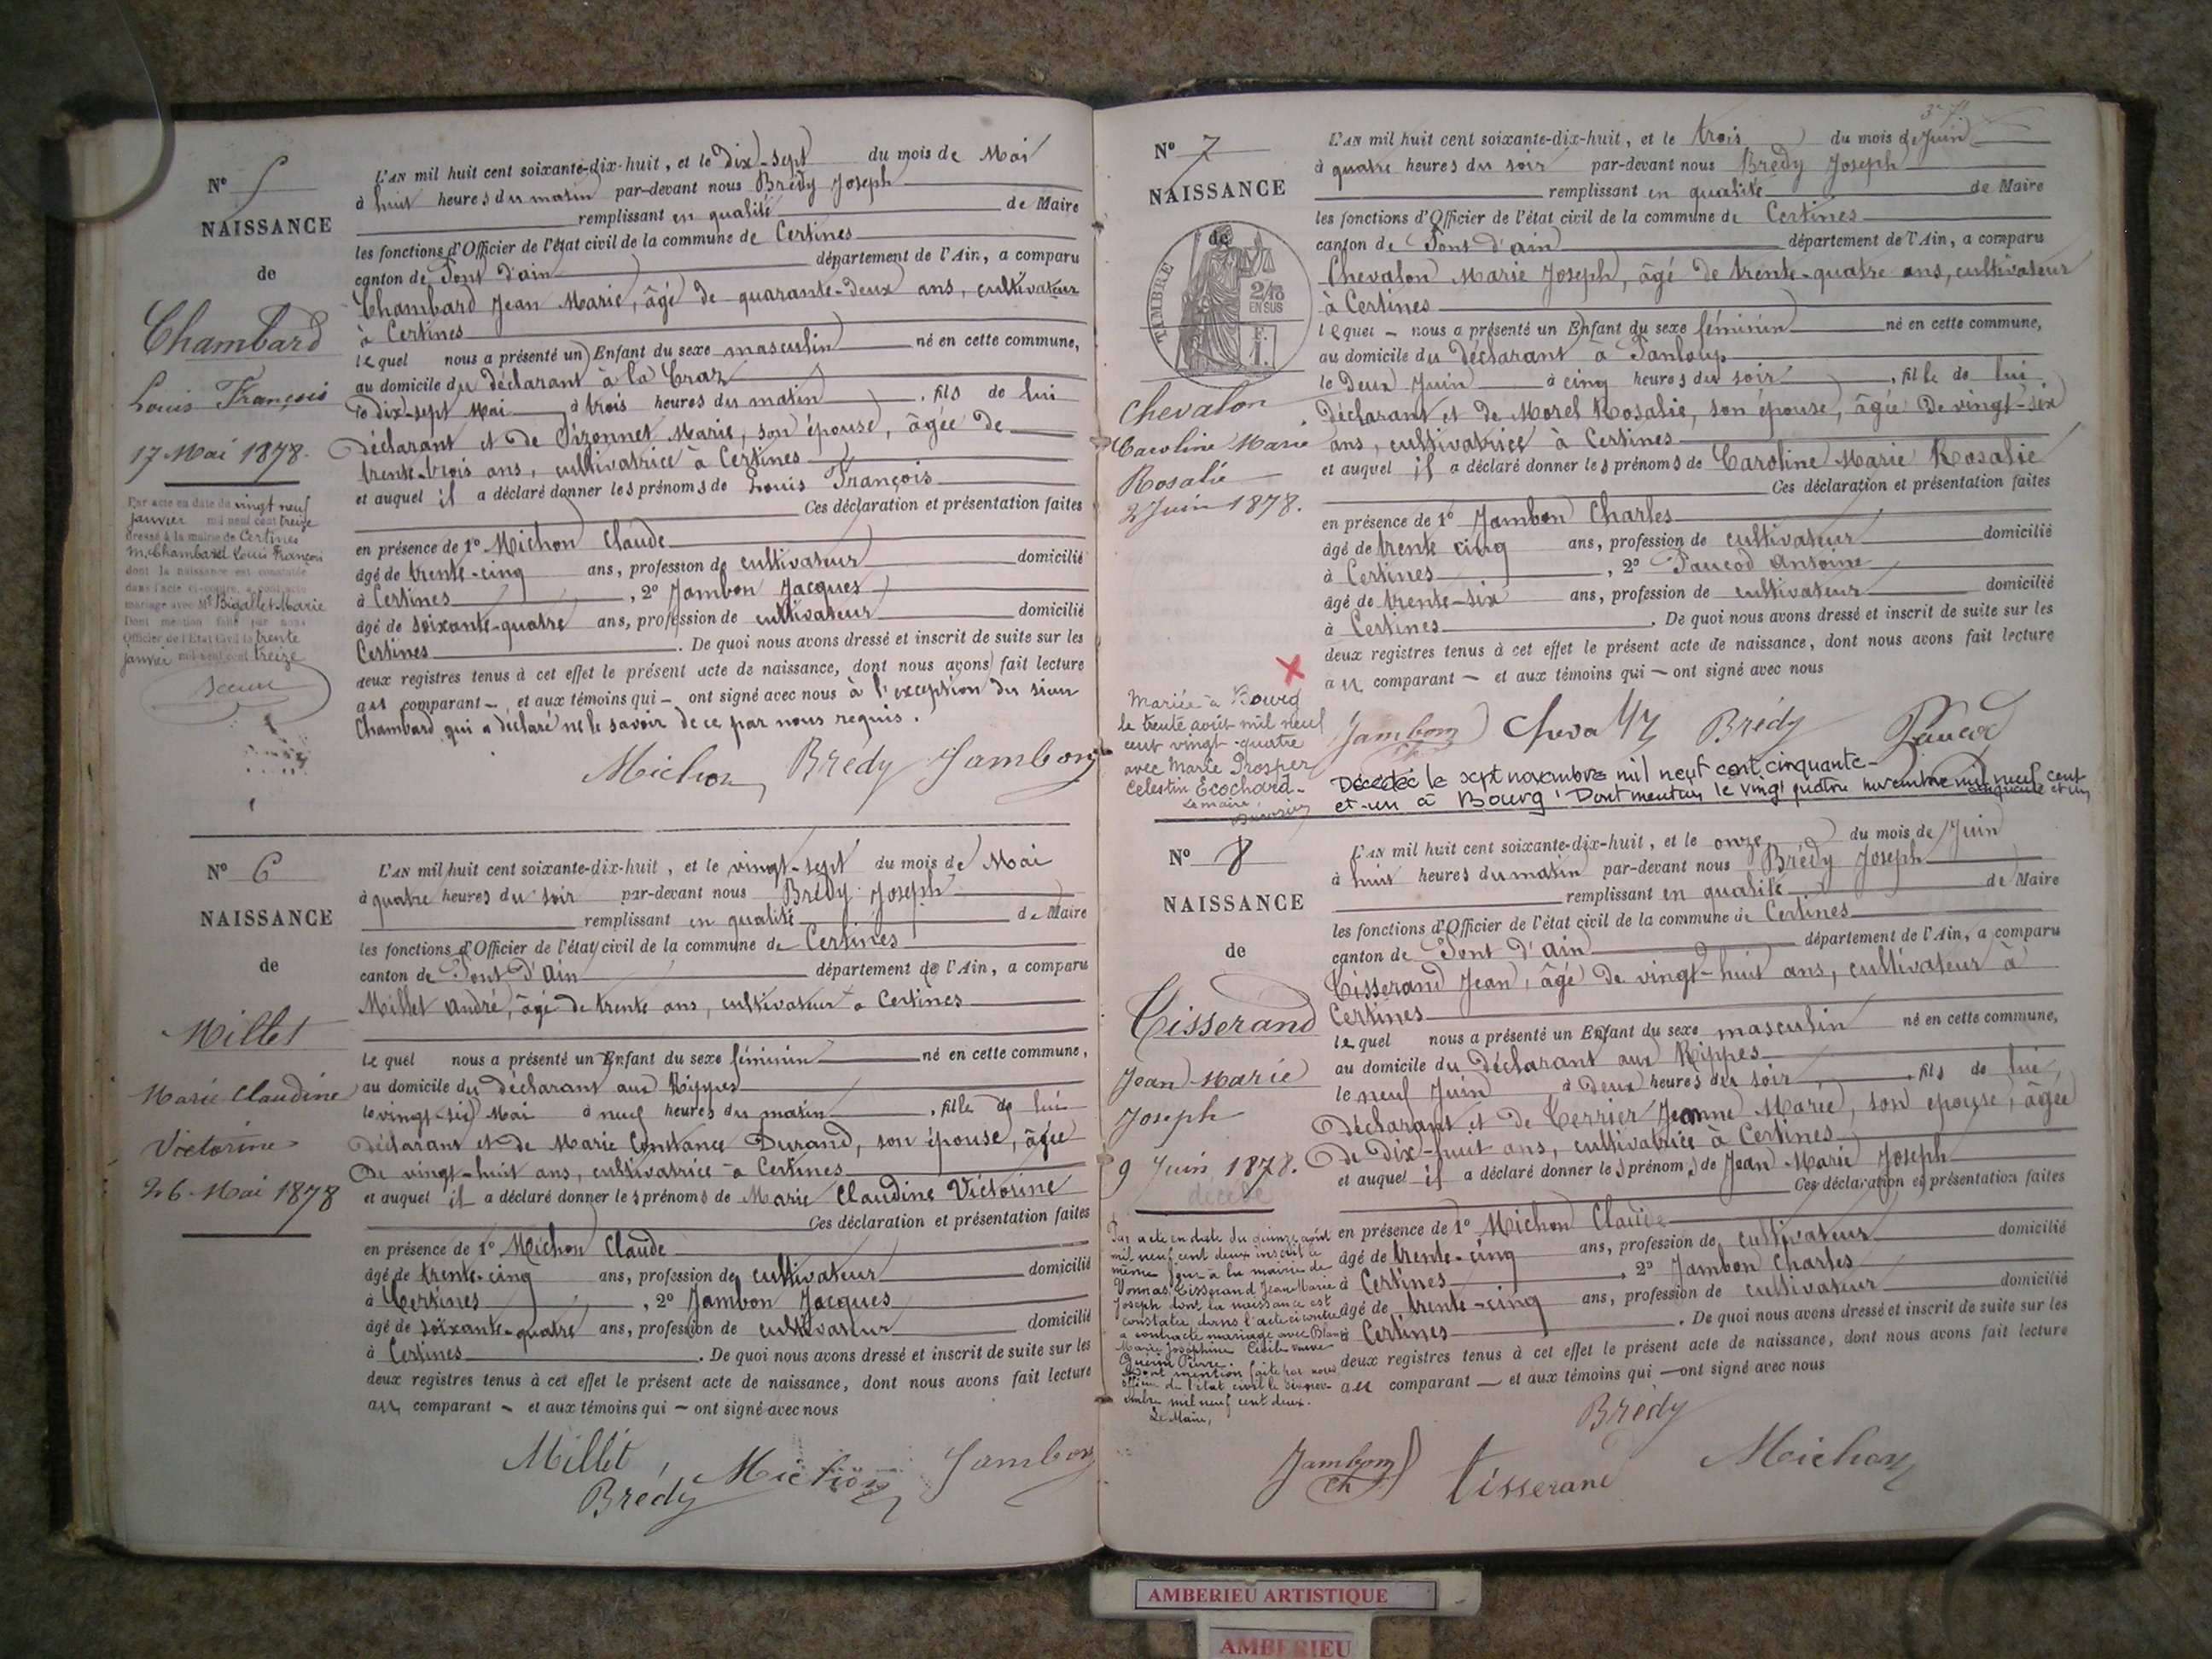 N° 5
NAISSANCE
de
Chambard
Louis François
17 Mai 1878.
Par acte en date du vingt neuf
janvier mil neuf cent treize
dressé à la mairie de Certines
M. Chambard Louis François
dont la naissance est constatée
dans l'acte ci-contre, a contracté
mariage avec Mlle Bigallet Marie
Dont mention faite par nous
Officier de l'Etat Civil le trente
janvier mil neuf cent treize
L'AN mil huit cent soixante-dix-huit, et le Dix-sept du mois de Mai
à huit heures du matin par-devant nous Brédy Joseph
remplissant en qualité de Maire
les fonctions d'Officier de l'état civil de la commune de Certines
canton de Pont d'ain département de l'Ain, a comparu
Chambard Jean Marie, âgé de quarante-deux ans, cultivateur
à Certines
lequel nous a présenté un Enfant du sexe masculin né en cette commune,
au domicile du déclarant à la Craz
le dix-sept Mai à trois heures du matin, fils de lui
déclarant et de Pizonnet Marie, son épouse, âgée de
trente-trois ans, cultivatrice à Certines
et auquel il a déclaré donner les prénoms de Louis François
Ces déclaration et présentation faites
en présence de 1° Michon Claude
âgé de trente-cinq ans, profession de cultivateur domicilié
à Certines, 2° Jambon Jacques
âgé de soixante-quatre ans, profession de cultivateur domicilié
Certines. De quoi nous avons dressé et inscrit de suite sur les
deux registres tenus à cet effet le présent acte de naissance, dont nous avons fait lecture
au comparant et aux témoins qui ont signé avec nous à l'exception du sieur
Chambard qui a déclaré ne le savoir de ce par nous requis.
Michon Brédy Jambon
N° 6
NAISSANCE
de
Millet
Marie Claudine
Victorine
26 Mai 1878
L'AN mil huit cent soixante-dix-huit, et le vingt-sept du mois de Mai
à quatre heures du soir par-devant nous Brédy Joseph
remplissant en qualité de Maire
les fonctions d'Officier de l'état civil de la commune de Certines
canton de Pont d'ain département de l'Ain, a comparu
Millet André, âgé de trente ans, cultivateur à Certines
lequel nous a présenté un Enfant du sexe féminin né en cette commune,
au domicile du déclarant aux Rippes
le vingt-six Mai à neuf heures du matin, fille de lui
déclarant et de Marie Constance Durand, son épouse, âgée
De vingt-huit ans, cultivatrice à Certines
et auquel il a déclaré donner les prénoms de Marie Claudine Victorine
Ces déclaration et présentation faites
en présence de 1° Michon Claude
âgé de trente-cinq ans, profession de cultivateur domicilié
à Certines, 2° Jambon Jacques
âgé de soixante-quatre ans, profession de cultivateur domicilié
à Certines. De quoi nous avons dressé et inscrit de suite sur les
deux registres tenus à cet effet le présent acte de naissance, dont nous avons fait lecture
au comparant et aux témoins qui ont signé avec nous
Millet Michon Jambon
Brédy
N° 7
NAISSANCE
de
TIMBRE
2/10
EN SUS
F.
1.
Chevalon
Caroline Marie
Rosalie
2 Juin 1878.
Mariée à Bourg
le trente août mil neuf
cent vingt-quatre
avec Marie Prosper
Celestin Ecochard.
Le maire
L'AN mil huit cent soixante-dix-huit, et le trois du mois de Juin
à quatre heures du soir par-devant nous Brédy Joseph
remplissant en qualité de Maire
les fonctions d'Officier de l'état civil de la commune de Certines
canton de Pont d'ain département de l'Ain, a comparu
Chevalon Marie Joseph, âgé de trente-quatre ans, cultivateur
à Certines
lequel nous a présenté un Enfant du sexe féminin né en cette commune,
au domicile du Déclarant à Panloup
le Deux Juin à cinq heures du soir, fille de lui
déclarant et de Morel Rosalie, son épouse, âgée De vingt-six
ans, cultivatrice à Certines
et auquel il a déclaré donner les prénoms de Caroline Marie Rosalie
Ces déclaration et présentation faites
en présence de 1° Jambon Charles
âgé de trente cinq ans, profession de cultivateur domicilié
à Certines, 2° Paucod Antoine
âgé de trente-six ans, profession de cultivateur domicilié
à Certines. De quoi nous avons dressé et inscrit de suite sur les
deux registres tenus à cet effet le présent acte de naissance, dont nous avons fait lecture
au comparant et aux témoins qui ont signé avec nous
Jambon Brédy Paucod
Décédée le sept novembre mil neuf cent cinquante-
et-un à Bourg. Dont mention le vingt quatre novembre mil neuf cent
cinquante et un
N° 8
NAISSANCE
de
Tisserand
Jean Marie
Joseph
9 Juin 1878.
décédé
Par acte en date du quinze août
mil neuf cent deux inscrit le
même jour à la mairie de
Vonnas, Tisserand Jean Marie
Joseph dont la naissance est
constatée dans l'acte ci contre
a contracté mariage avec Blanc
Marie Joséphine Cécile veuve
Guerin Pierre.
Dont mention faite par nous
officier de l'état civil le
embre mil neuf cent deux.
Le Maire,
L'AN mil huit cent soixante-dix-huit, et le onze du mois de Juin
à huit heures du matin par-devant nous Brédy Joseph
remplissant en qualité de Maire
les fonctions d'Officier de l'état civil de la commune de Certines
canton de Pont d'ain département de l'Ain, a comparu
Tisserand Jean, âgé de vingt-huit ans, cultivateur à
Certines
lequel nous a présenté un Enfant du sexe masculin né en cette commune,
au domicile du Déclarant aux Rippes
le neuf Juin à Deux heures du soir, fils de lui,
Déclarant et de Terrier Jeanne Marie, son épouse, âgée
De Dix-huit ans, cultivatrice à Certines
et auquel il a déclaré donner les prénoms de Jean Marie Joseph
Ces déclaration et présentation faites
en présence de 1° Michon Claude
âgé de trente-cinq ans, profession de cultivateur domicilié
à Certines, 2° Jambon Charles
âgé de trente-cinq ans, profession de cultivateur domicilié
à Certines. De quoi nous avons dressé et inscrit de suite sur les
deux registres tenus à cet effet le présent acte de naissance, dont nous avons fait lecture
au comparant et aux témoins qui ont signé avec nous
Brédy
Jambon Ch Tisserand Michon
AMBERIEU ARTISTIQUE
AMBERIEU